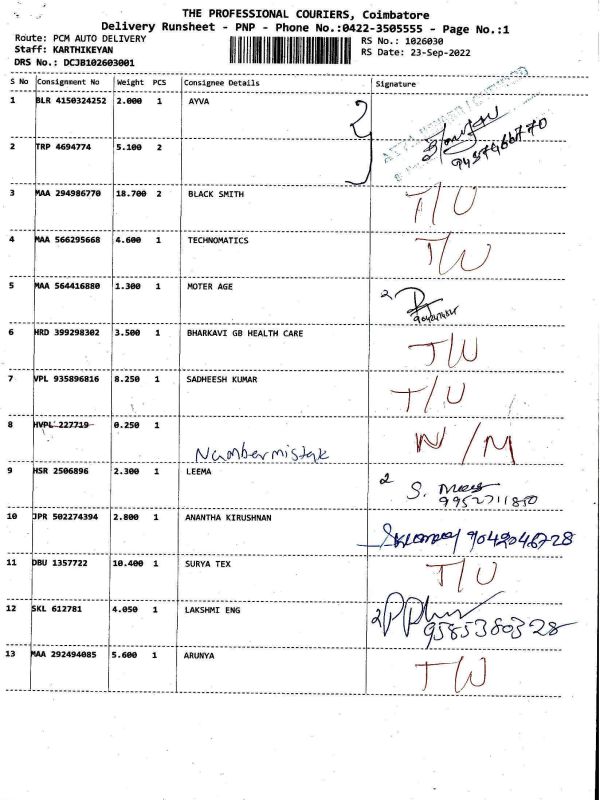 THE PROFESSIONAL COURIERS, Coimbatore
Delivery Runsheet - PNP - Phone No.:0422-3505555 - Page No.:1
Route: PCM AUTO DELIVERY RS No.: 1026030
Staff: KARTHIKEYAN RS Date: 23-Sep-2022
DRS No.: DCJB102603001
S No Consignment No Weight PCS Consignee Details Signature
1 BLR 4150324252 2.000 1 AYVA 2
2 TRP 4694774 5.100 2
3 MAA 294986770 18.700 2 BLACK SMITH T/U
4 MAA 566295668 4.600 1 TECHNOMATICS T/W
5 MAA 564416880 1.300 1 MOTER AGE 2
6 HRD 399298302 3.500 1 BHARKAVI GB HEALTH CARE T/U
7 VPL 935896816 8.250 1 SADHEESH KUMAR T/U
8 HVPL 227719 0.250 1 N/M
Number mistak
9 HSR 2506896 2.300 1 LEEMA 2 S.
9952711850
10 JPR 502274394 2.800 1 ANANTHA KIRUSHNAN 9042046728
11 DBU 1357722 10.400 1 SURYA TEX T/U
12 SKL 612781 4.050 1 LAKSHMI ENG 2
9585380328
13 MAA 292494085 5.600 1 ARUNYA T/W